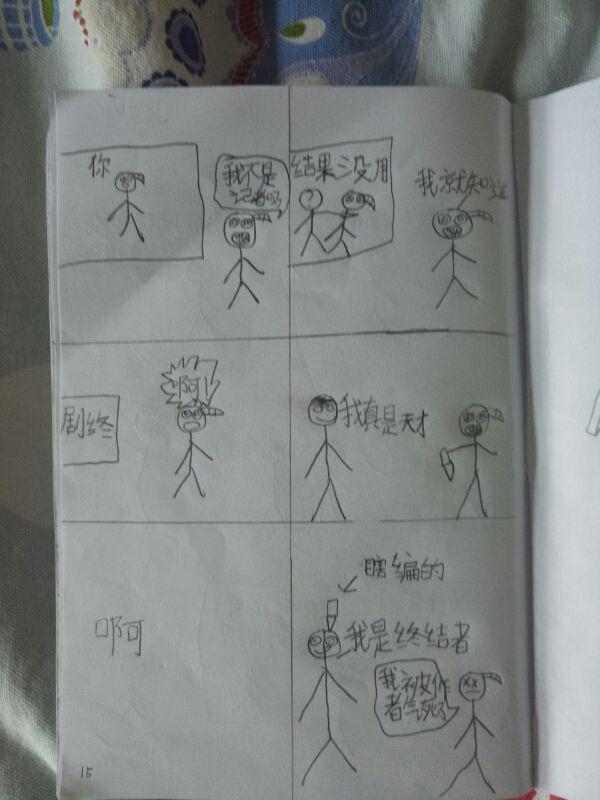 你
我不是
记者吗
结果没用
我就知道
剧终
啊
我真是天才
啊
瞎编的
我是终结者
我被作
者气死了
15